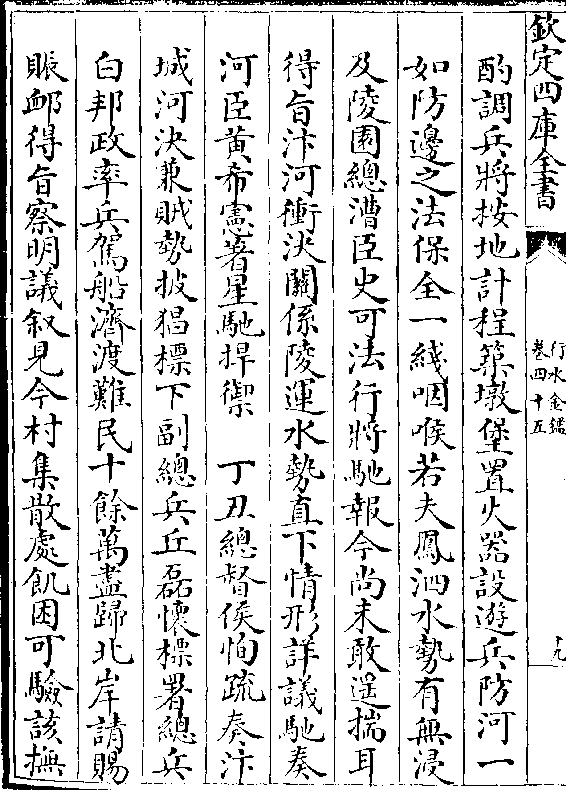 欽定四庫全書
行水金鑑
卷四十五
十九
酌調兵將按地計程築墩堡置火器設遊兵防河一
如防邊之法保全一綫咽喉若夫鳳泗水勢有無浸
及陵園總漕臣史可法行將馳報今尚未敢遥揣耳
得旨汴河衝決關係陵運水勢直下情形詳議馳奏
河臣黄希憲著星馳捍禦　丁丑總督侯恂疏奏汴
城河決兼賊勢披猖標下副總兵丘磊懷標署總兵
白邦政率兵駕船濟渡難民十餘萬盡歸北岸請賜
賑䘏得旨察明議叙見今村集散處飢困可驗該撫